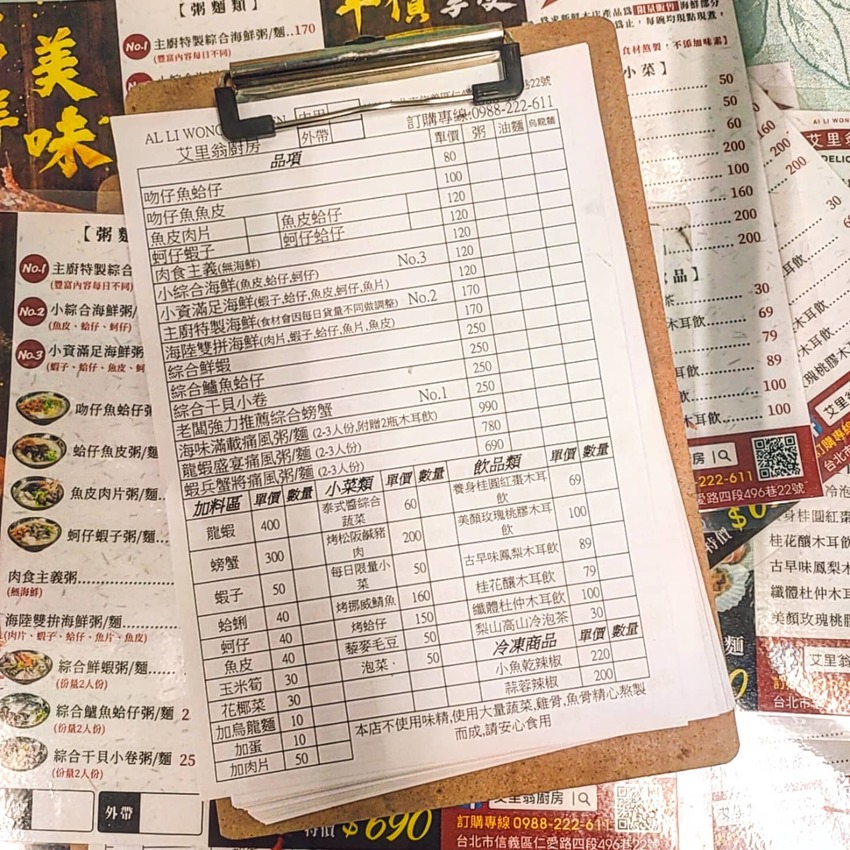 【粥麵類】
No.1 主廚特製綜合海鮮粥/麵..170
(豐富內容每日不同)
平價享受
美味
限量販售
食材熬製，不添加味素】
小菜】
50
50
60
100
100
160
200
200
30
69
79
89
100
100
AI LI WONG
艾里翁廚房
內用
外帶
訂購專線:0988-222-611
品項 單價 粥 油麵 烏龍麵
吻仔魚蛤仔 80
吻仔魚魚皮 100
魚皮肉片 魚皮蛤仔 120
蚵仔蝦子 蚵仔蛤仔 120
肉食主義(無海鮮) 120
小綜合海鮮(魚皮,蛤仔,蚵仔) No.3 120
小資滿足海鮮(蝦子,蛤仔,魚皮,蚵仔,魚片) 120
主廚特製海鮮(食材會因每日貨量不同做調整) No.2 170
海陸雙拼海鮮(肉片,蝦子,蛤仔,魚片,魚皮) 170
綜合鮮蝦 250
綜合鱸魚蛤仔 250
綜合干貝小卷 250
老闆強力推薦綜合螃蟹 No.1 250
海味滿載痛風粥/麵 (2-3人份,附贈2瓶木耳飲) 990
龍蝦盛宴痛風粥/麵 (2-3人份) 780
蝦兵蟹將痛風粥/麵 (2-3人份) 690
加料區 單價 數量
龍蝦 400
螃蟹 300
蝦子 50
蛤蜊 40
蚵仔 40
魚皮 40
玉米筍 30
花椰菜 30
加烏龍麵 10
加蛋 10
加肉片 50
小菜類 單價 數量
泰式醬綜合蔬菜 60
烤松阪鹹豬肉 200
每日限量小菜 50
烤挪威鯖魚 160
烤蛤仔 150
藜麥毛豆 50
泡菜 50
飲品類 單價 數量
養身桂圓紅棗木耳飲 69
美顏玫瑰桃膠木耳飲 100
古早味鳳梨木耳飲 89
桂花釀木耳飲 79
纖體杜仲木耳飲 100
梨山高山冷泡茶 30
冷凍商品 單價 數量
小魚乾辣椒 220
蒜蓉辣椒 200
本店不使用味精,使用大量蔬菜,雞骨,魚骨精心熬製
而成,請安心食用
【粥麵
No.1 主廚特製綜合
(豐富內容每日不同)
No.2 小綜合海鮮粥/
(魚皮、蛤仔、蚵仔)
No.3 小資滿足海鮮粥
(蝦子、蛤仔、魚皮、蚵
吻仔魚蛤仔粥
蛤仔魚皮粥/麵
魚皮肉片粥/麵..
蚵仔蝦子粥/麵
肉食主義粥
(無海鮮)
海陸雙拼海鮮粥/麵
(肉片、蝦子、蛤仔、魚片、魚皮)
綜合鮮蝦粥/麵
(份量2人份)
綜合鱸魚蛤仔粥/麵 2
(份量2人份)
綜合干貝小卷粥/麵 25
(份量2人份)
外帶
特價 $690
艾里翁廚房
訂購專線 0988-222-611
台北市信義區仁愛路四段496巷22號
桂花釀木耳飲
古早味鳳梨木
纖體杜仲木耳
美顏玫瑰桃膠